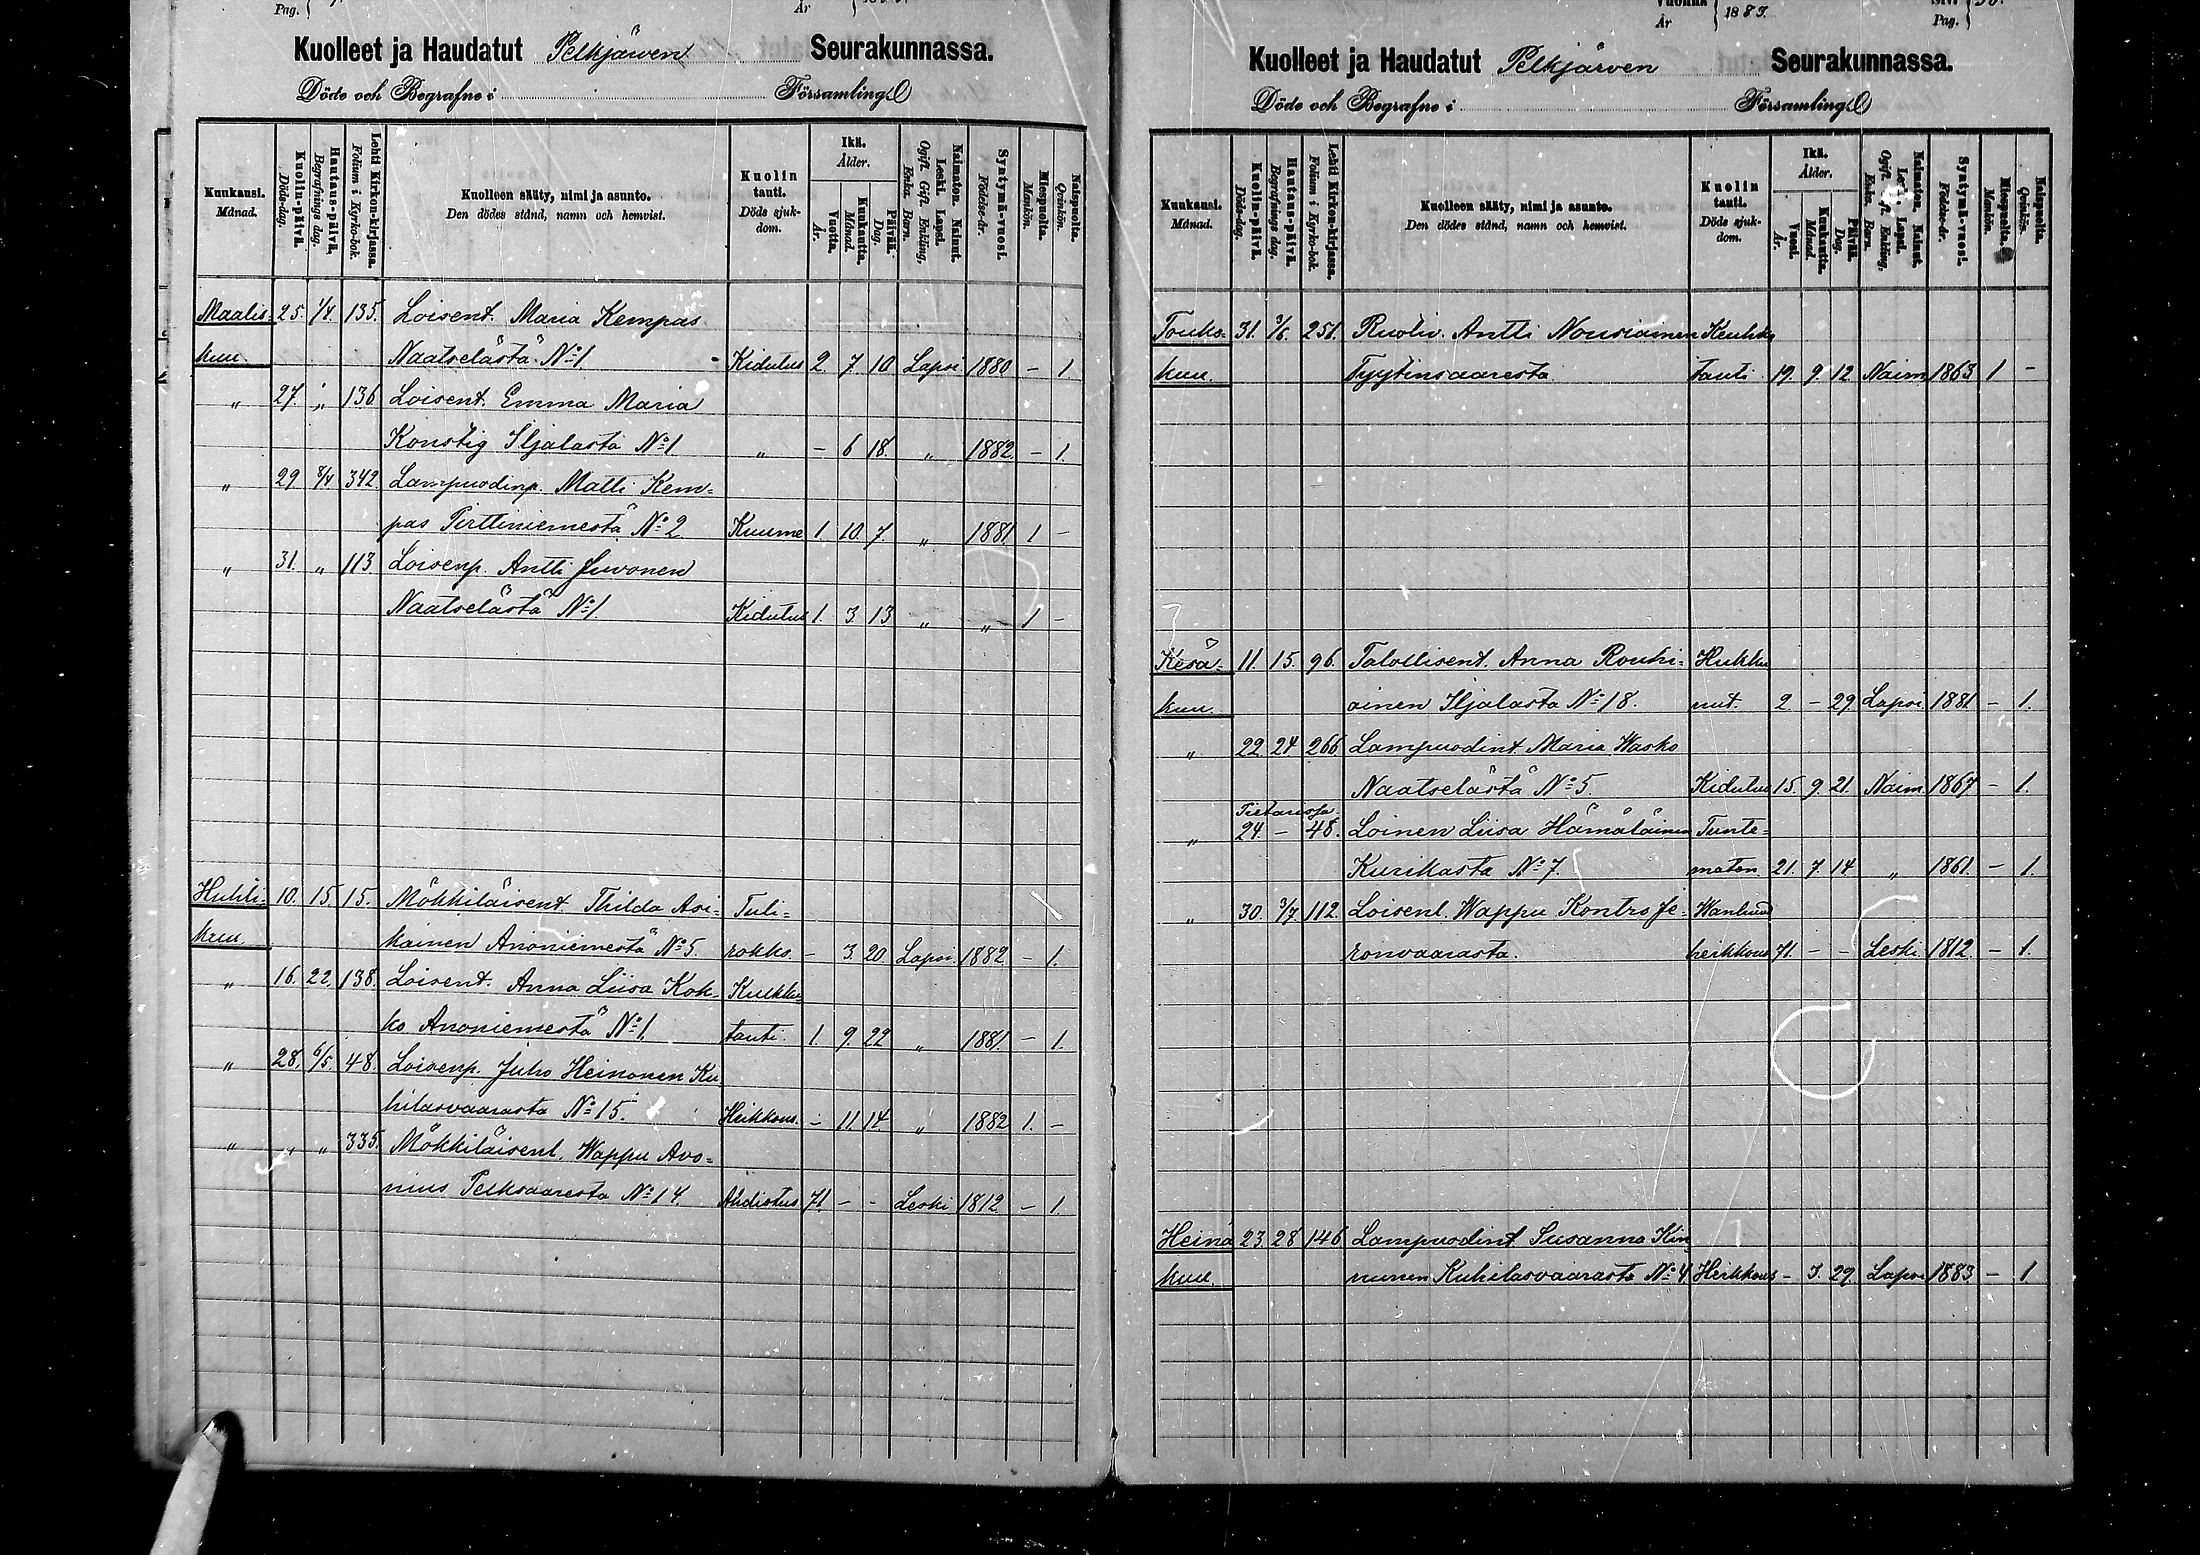 Pag.
År
Kuolleet ja Haudatut Pelkjärwen Seurakunnassa.
Döde och Begrafne i Församling
Kuukausi. Månad.
Kuolin-päivä. Döds-dag.
Hautaus-päivä. Begrafnings dag.
Lehti Kirkon-kirjassa. Folium i Kyrko-bok.
Kuolleen sääty, nimi ja asunto. Den dödes stånd, namn och hemvist.
Kuolin tauti. Döds sjuk-dom.
Ikä. Ålder.
Vuotta. År.
Kuukautta. Månad.
Päivää. Dag.
Naimaton. Nainut. Leski. Lapsi. Ogift. Gift. Enkling, Enka. Barn.
Syntymä-vuosi. Födelse-år.
Miespuolta. Mankön.
Naispuolta. Qvinkön.
Maalis- 25. 1/4. 135. Loisent. Maria Kempas
kuu. Naatselästä No 1. Kidutus 2. 7. 10 Lapsi 1880 – 1
„ 27. „ 136 Loisent. Emma Maria
Konstig Iljalasta No 1 „ – 6 18. „ 1882. – 1.
„ 29. 8/4 342 Lampuodinp. Matti Kem-
pas Tirttiniemestä No 2 Kuume 1. 10. 7. „ 1881 1 –
„ 31. „ 113 Loisenp. Antti Juvonen
Naatselästä No 1. Kidutus 1. 3. 13 „ „ 1 –
Huhti- 10. 15. 15. Mökkiläisent. Thilda Asi- Tuli-
kuu. kainen Anoniemestä No 5. rokko. – 3. 20. Lapsi. 1882 – 1.
„ 16. 22. 138. Loisent. Anna Liisa Kok- Kurkku
ko Anoniemestä No 1. tauti. 1. 9. 22 „ 1881. – 1.
„ 28. 6/5 48. Loisenp. Juho Heinonen Ku
hilasvaarasta No 15. Heikkous. – 11. 14. „ 1882 1. –
„ „ „ 335. Mökkiläisenl. Wappu Avo-
nius Pelksaaresta No 14. Ahdistus 71. – – Leski 1812. – 1.
Vuonna År 1883.
Pag.
Kuolleet ja Haudatut Pelkjärven Seurakunnassa.
Döde och Begrafne i Församling
Kuukausi. Månad.
Kuolin-päivä. Döds-dag.
Hautaus-päivä. Begrafnings dag.
Lehti Kirkon-kirjassa. Folium i Kyrko-bok.
Kuolleen sääty, nimi ja asunto. Den dödes stånd, namn och hemvist.
Kuolin tauti. Döds sjuk-dom.
Ikä. Ålder.
Vuosi. År.
Kuukautta. Månad.
Päivää. Dag.
Naimaton. Nainut. Leski. Lapsi. Ogift. Gift. Enkling, Enka. Barn.
Syntymä-vuosi. Födelse-år.
Miespuolta. Mankön.
Naispuolta. Qvinkön.
Touko- 31. 3/6. 251. Ruotiv. Antti Nousiainen Keuhko
kuu. Tyytinsaaresta tauti 19. 9. 12. Naim 1863 1 –
Kesä- 11. 15. 96. Talollisent. Anna Rouhi- Hukku
kuu. ainen Iljalasta No 18. nut. 2 – 29. Lapsi 1881 – 1.
„ 22 24 266 Lampuodint. Maria Wasko
Naatselästä No 5 Kidutus 15. 9. 21. Naim 1867 – 1.
Pietarissa
„ 24 – 48. Loinen Liisa Hämäläinen Tunte-
Kurikasta No 7. maton 21. 7. 14 „ 1861. – 1.
„ 30. 3/7. 112. Loisenl. Wappu Kontro Je- Wanhuud
ronvaarasta. heikkous 71. – – Leski 1812. – 1.
Heinä 23. 28 146 Lampuodint. Susanna Kin
kuu. nunen Kuhilasvaarasta No 4 Heikkous – 3. 29. Lapsi 1883 – 1